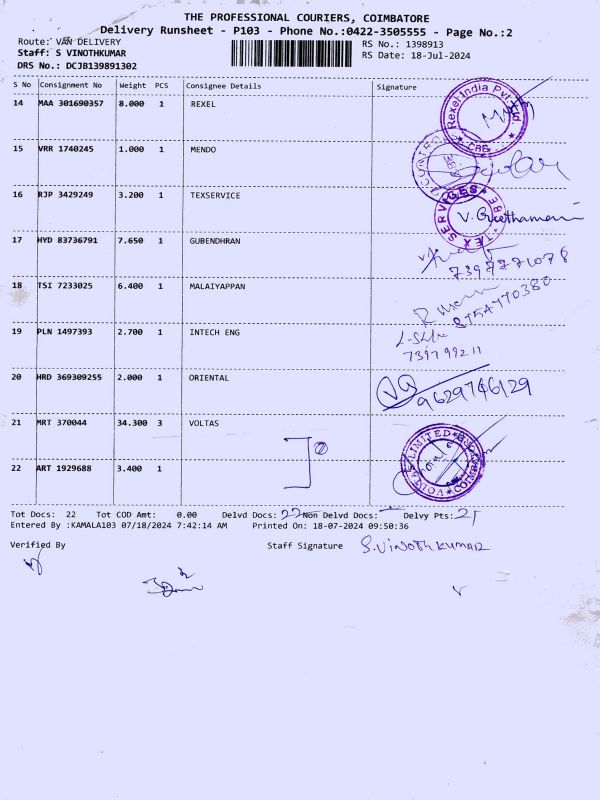 THE PROFESSIONAL COURIERS, COIMBATORE
Delivery Runsheet - P103 - Phone No.:0422-3505555 - Page No.:2
Route: VAN DELIVERY
RS No.: 1398913
Staff: S VINOTHKUMAR
RS Date: 18-Jul-2024
DRS No.: DCJB139891302
S No Consignment No Weight PCS Consignee Details Signature
14 MAA 301690357 8.000 1 REXEL
Rexel India Pvt
CBE
15 VRR 1740245 1.000 1 MENDO
16 RJP 3429249 3.200 1 TEXSERVICE
TEX SERVICES CBE
V. Geethamani
17 HYD 83736791 7.650 1 GUBENDHRAN
7397771078
18 TSI 7233025 6.400 1 MALAIYAPPAN
8754770380
19 PLN 1497393 2.700 1 INTECH ENG
739799211
20 HRD 369309255 2.000 1 ORIENTAL
9629746129
21 MRT 370044 34.300 3 VOLTAS
VOLTAS LIMITED
22 ART 1929688 3.400 1
Tot Docs: 22 Tot COD Amt: 0.00 Delvd Docs: 22 Non Delvd Docs: Delvy Pts: 21
Entered By :KAMALA103 07/18/2024 7:42:14 AM Printed On: 18-07-2024 09:50:36
Verified By Staff Signature S.VINOTHKUMAR